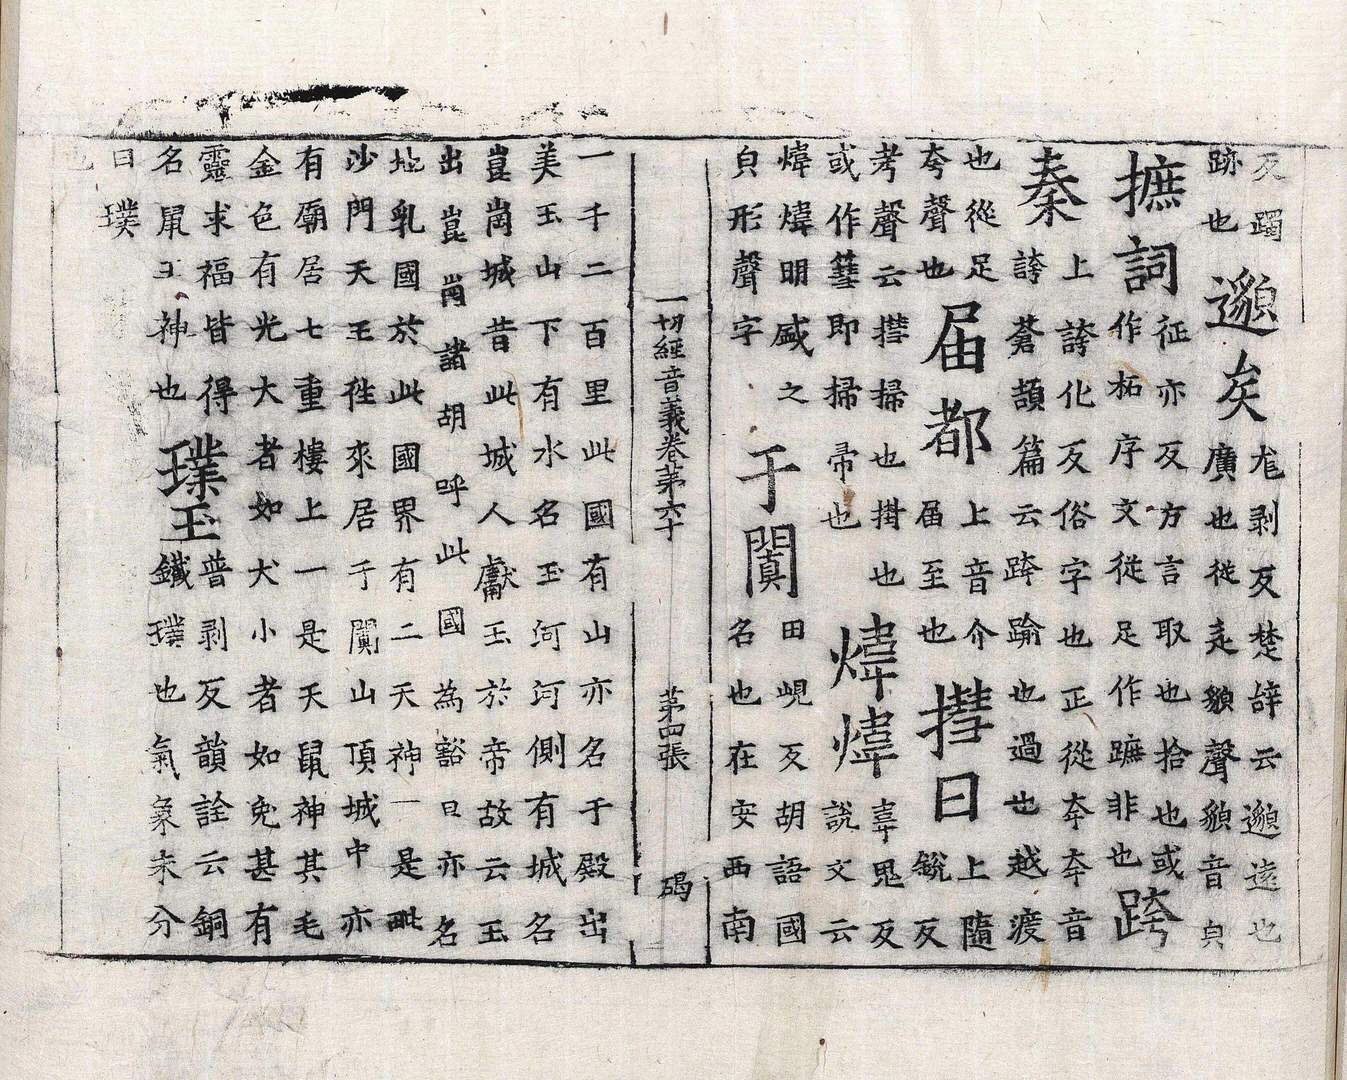 反躅
跡也
邈矣
尨剥反楚辝云邈遠也
廣也從辵䫉聲䫉音皃
摭詞
征亦反方言取也拾也或
作柘序文從足作蹠非也
跨
秦
上誇化反俗字也正從夸夸音
誇蒼頡篇云跨踰也過也越渡
也從足
夸聲也
届都
上音介
届至也
㨹曰
上隨
銳反
考聲云㨹掃也掛也
或作篲即掃帚也
煒煒
韋鬼反
說文云
煒煒明盛之
皃形聲字
于闐
田峴反胡語國
名也在安西南
一切經音義卷第六十 第四張 碣
一千二百里此國有山亦名于殿出
美玉山下有水名玉河河側有城名
崑崗城昔此城人獻玉於帝故云玉
出崑崗諸胡呼此國為豁旦亦名
地乳國於此國界有二天神一是毗
沙門天王往來居于闐山頂城中亦
有廟居七重樓上一是天鼠神其毛
金色有光大者如犬小者如兔甚有
靈求福皆得
名鼠王神也
璞玉
普剥反韻詮云銅
鐵璞也氣象未分
曰璞
也